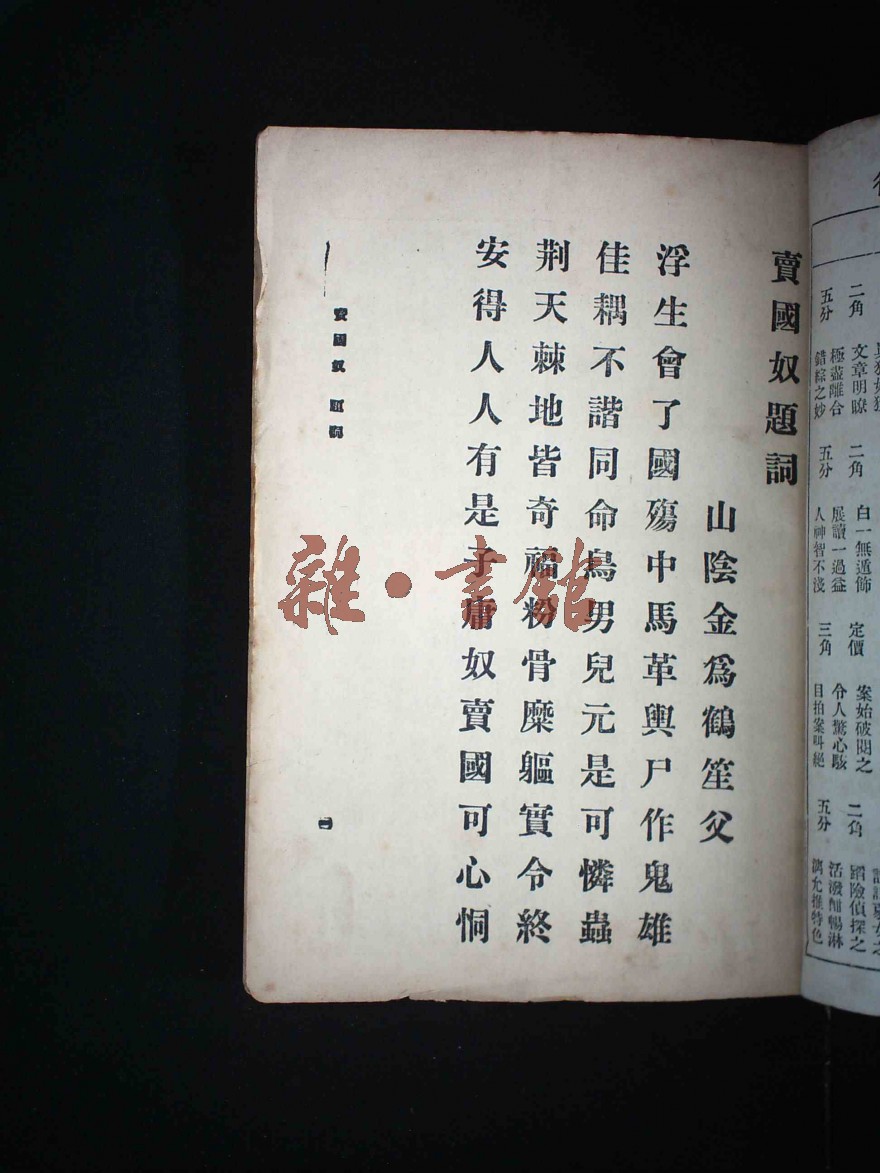 賣國奴題詞
山陰金爲鶴笙父
浮生會了國殤中馬革輿尸作鬼雄
佳耦不諧同命鳥男兒元是可憐蟲
荆天棘地皆奇福粉骨糜軀實令終
安得人人有是子庸奴賣國可心恫
賣國奴 題詞
一
雜·書館
二角
五分
文章明瞭
極盡離合
錯綜之妙
二角
五分
白一無遁飾
展讀一過益
人神智不淺
定價
三角
案始破閱之
令人驚心駭
目拍案叫絕
二角
五分
蹈險偵探之
活潑酣暢淋
漓允推特色